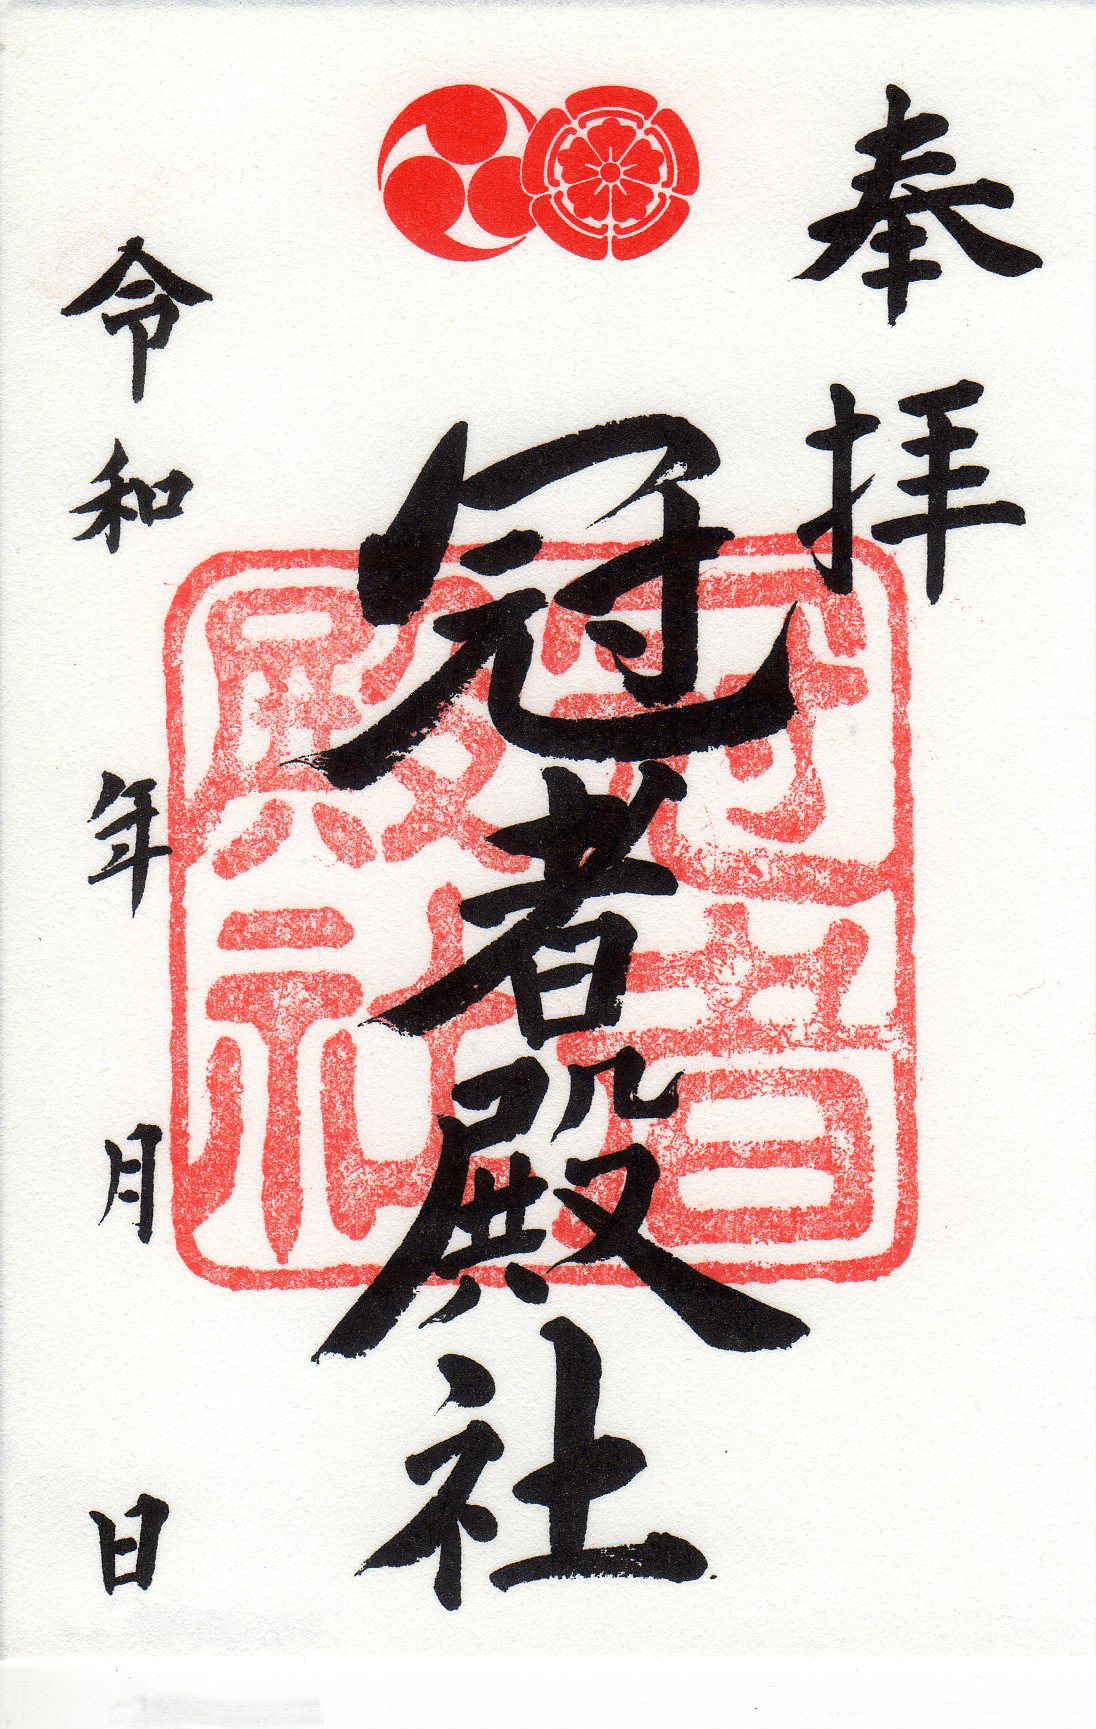 奉拝
冠者殿社
冠者殿社
令和 年 月 日